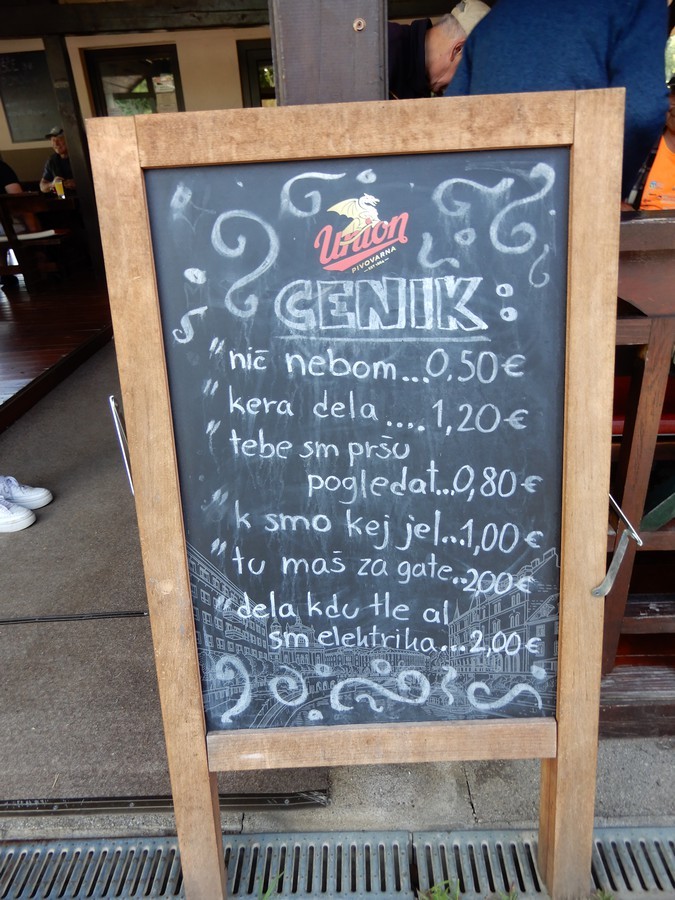 Union
PIVOVARNA
EST. 1864
CENIK:
"nič nebom...0,50€
"kera dela....1,20€
"tebe sm pršu
pogledat...0,80€
"k smo kej jel...1,00€
"tu maš za gate..200€
"dela kdu tle al
sm elektrika...2,00€